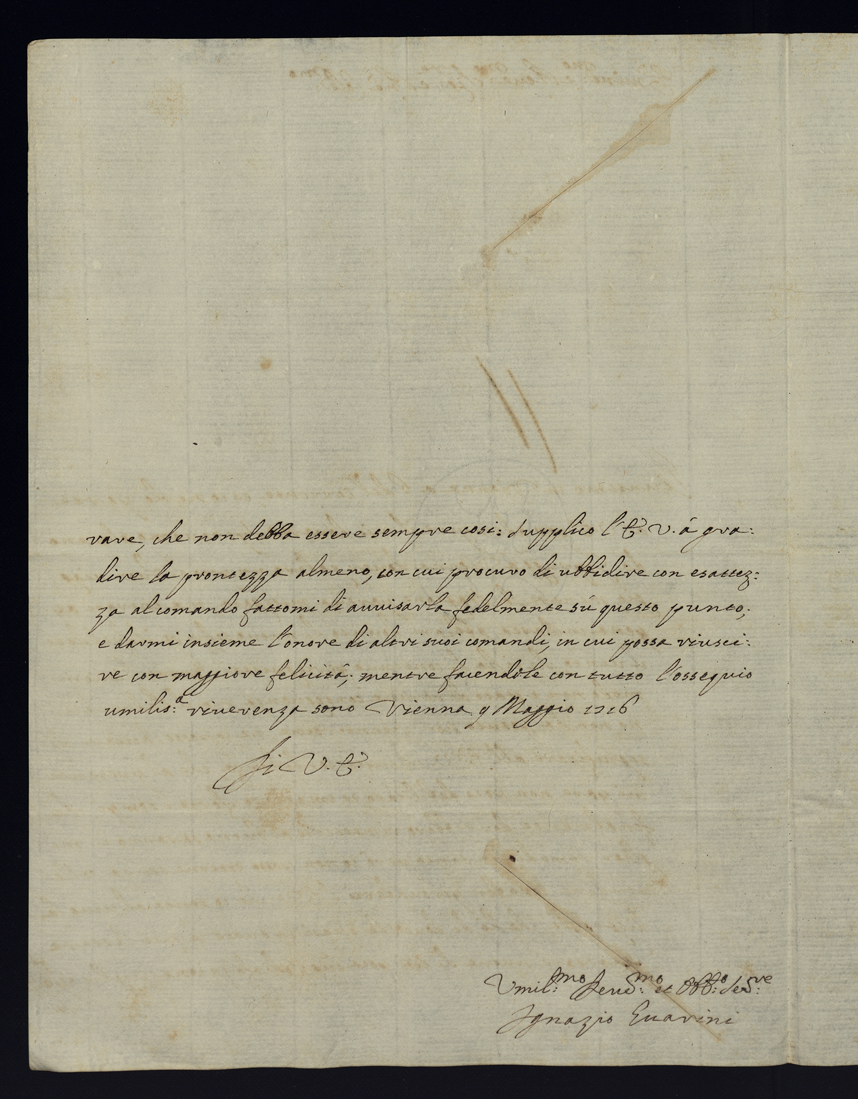 vare, che non debba essere sempre cosi: Supplico l'E. V. à gra:
dire la prontezza almeno, con cui procuro di ubbidire con esattez:
za al comando fattomi di avvisarla fedelmente sù questo punto,
e darmi insieme l'onore di altri suoi comandi, in cui possa riusci:
re con maggiore felicità; mentre facendole con tutto l'ossequio
umilis:a riverenza sono Vienna 9 Maggio 1716
Di V. E.
Umil:mo Deuo:mo et Obb:o Ser:ve
Ignazio Guarini